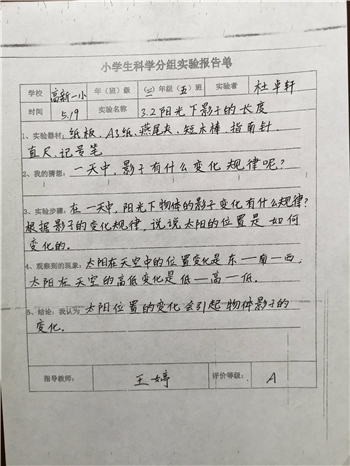 小学生科学分组实验报告单
学校 高新一小 年（班）级 （三）年级（五）班 实验者 杜卓轩
时间 5.19 实验名称 3.2阳光下影子的长度
1、实验器材：纸板、A3纸、燕尾夹、短木棒、指南针、
直尺、记号笔
2、我的猜想：一天中，影子有什么变化规律呢？
3、实验步骤：在一天中，阳光下物体的影子变化有什么规律？
根据影子的变化规律，说说太阳的位置是如何
变化的。
4、观察到的现象：太阳在天空中的位置变化是东一南一西，
太阳在天空的高低变化是低一高一低。
5、结论：我认为太阳位置的变化会引起物体影子的
变化。
指导教师： 王婷 评价等级： A